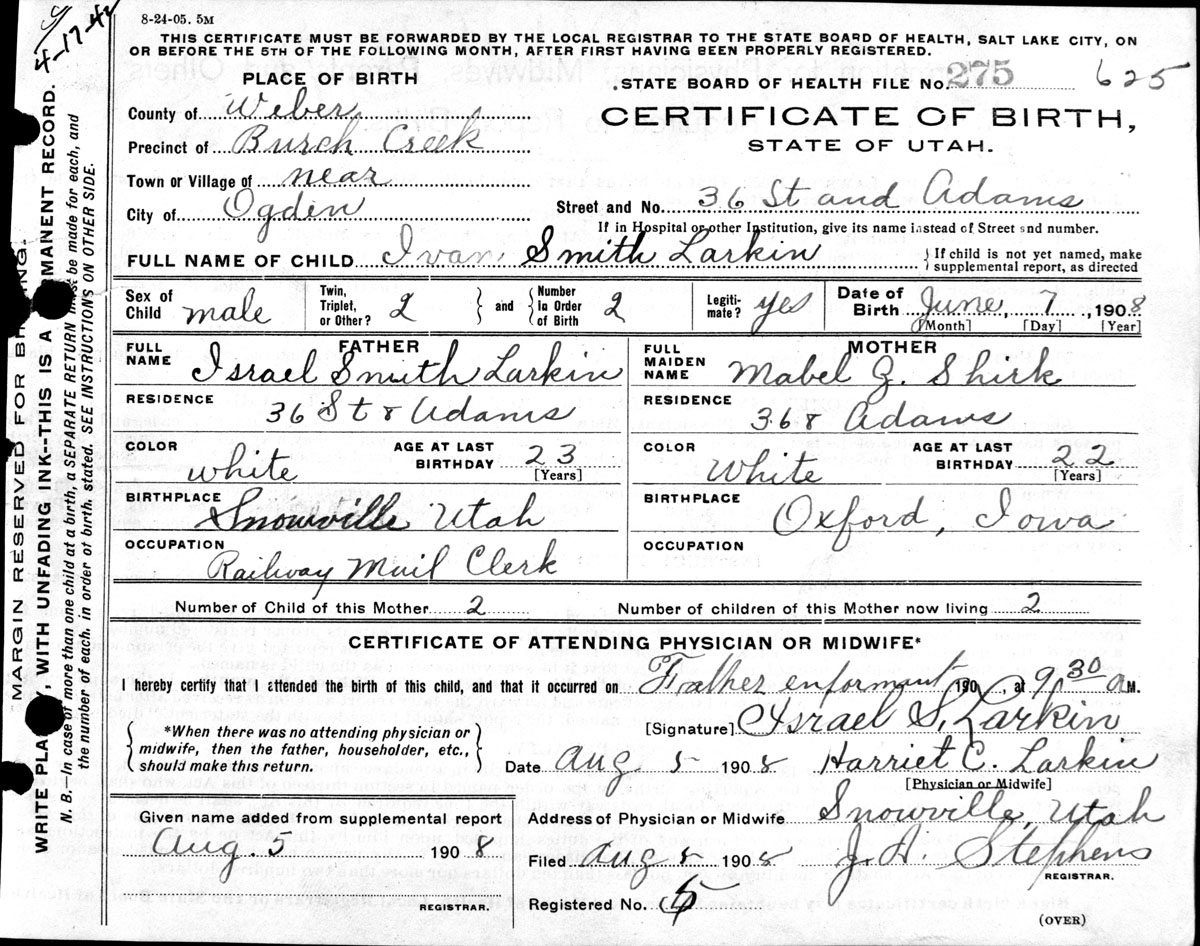 4-17-42
8-24-05. 5M
THIS CERTIFICATE MUST BE FORWARDED BY THE LOCAL REGISTRAR TO THE STATE BOARD OF HEALTH, SALT LAKE CITY, ON
OR BEFORE THE 5TH OF THE FOLLOWING MONTH, AFTER FIRST HAVING BEEN PROPERLY REGISTERED.
PLACE OF BIRTH
STATE BOARD OF HEALTH FILE No. 275 625
County of Weber
CERTIFICATE OF BIRTH,
Precinct of Burch Creek
STATE OF UTAH.
Town or Village of near
City of Ogden
Street and No. 36 St and Adams
If in Hospital or other Institution, give its name instead of Street and number.
FULL NAME OF CHILD Ivan Smith Larkin
If child is not yet named, make
supplemental report, as directed
Sex of Child male
Twin, Triplet, or Other? 2 and Number In Order of Birth 2
Legiti-mate? yes
Date of Birth June 7, 1908
[Month] [Day] [Year]
FATHER
FULL NAME Israel Smith Larkin
MOTHER
FULL MAIDEN NAME Mabel G. Shirk
RESIDENCE 36 St & Adams
RESIDENCE 36 & Adams
COLOR white AGE AT LAST BIRTHDAY 23 [Years]
COLOR White AGE AT LAST BIRTHDAY 22 [Years]
BIRTHPLACE Snowville Utah
BIRTHPLACE Oxford, Iowa
OCCUPATION Railway Mail Clerk
OCCUPATION
Number of Child of this Mother 2 Number of children of this Mother now living 2
CERTIFICATE OF ATTENDING PHYSICIAN OR MIDWIFE*
I hereby certify that I attended the birth of this child, and that it occurred on Father enformant 190 , at 9 30 a M.
[Signature] Israel S. Larkin
*When there was no attending physician or
midwife, then the father, householder, etc.,
should make this return.
Date Aug 5 1908 Harriet C. Larkin
[Physician or Midwife]
Given name added from supplemental report
Aug. 5 1908
REGISTRAR.
Address of Physician or Midwife Snowville, Utah
Filed Aug 5 1908 J. H. Stephens
REGISTRAR.
Registered No. 5
(OVER)
MARGIN RESERVED FOR
WRITE WITH UNFADING INK--THIS IS A PERMANENT RECORD.
N. B.—In case of more than one child at a birth, a SEPARATE RETURN must be made for each, and
the number of each, in order of birth, stated. SEE INSTRUCTIONS ON OTHER SIDE.